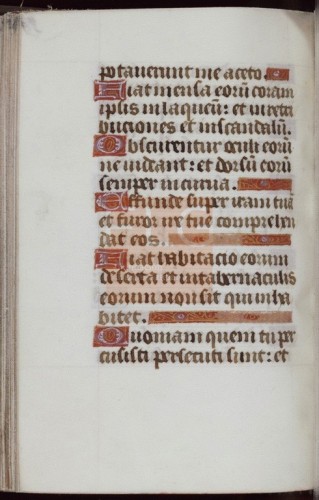 potauerunt me aceto.
Fiat mensa eorū coram
ipsis in laqueū: et in reti
buciones et in scandalū.
Obscurentur oculi eorū
ne videant: et dorsū eorū
semper incurua.
Effunde super iram tuā
et furor ire tue comprehen
dat eos.
Fiat habitacio eorum
deserta et in tabernaculis
eorum non sit qui inha
bitet.
Quoniam quem tu per
cusisti persecuti sunt: et